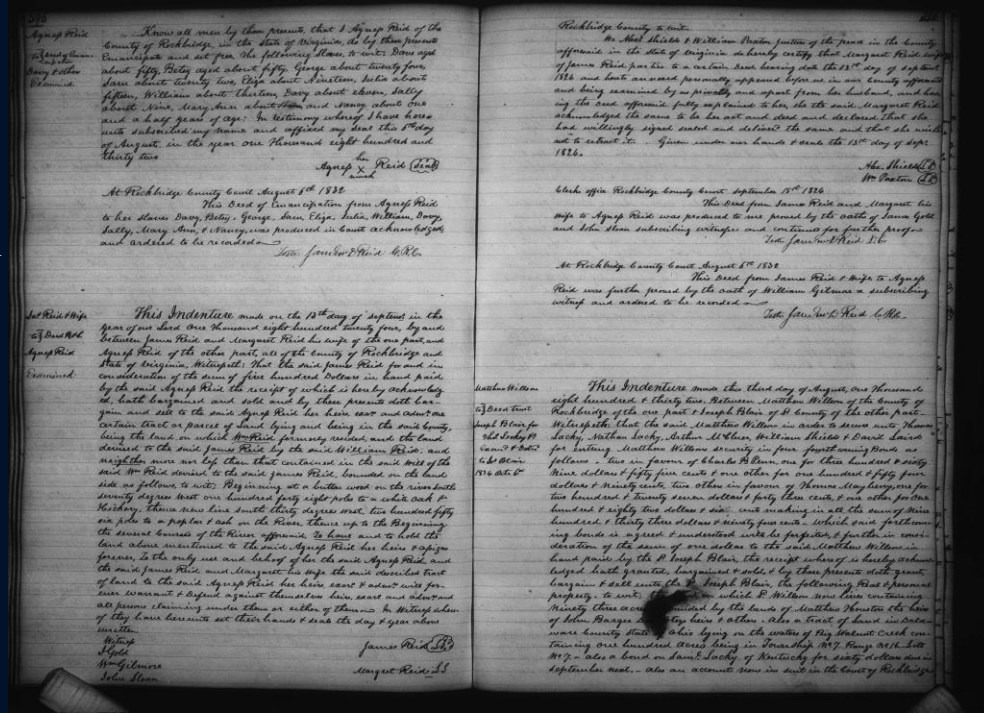 396
Agness Reid
to } Deed of Eman-
cipation
Davy & others
Examined
Know all men by them presents, that I Agness Reid of the
County of Rockbridge, in the State of Virginia, do by them presents
Emancipate and set free the following Slaves, to wit: Davy aged
about fifty, Betsy aged about fifty, George about twenty four,
Sam about twenty two, Eliza about Nineteen, Julia about
fifteen, William about thirteen, Davy about eleven, Sally
about Nine, Mary Ann about and Nancy about one
and a half years of age: In testimony whereof I have here-
unto subscribed my name and affixed my seal this 6th day
of August, in the year one thousand eight hundred and
thirty two
her
Agness X Reid (Seal)
mark
At Rockbridge County Court August 6th 1832
This Deed of Emancipation from Agness Reid
to her slaves Davy, Betsy, George, Sam, Eliza, Julia, William, Davy,
Sally, Mary Ann, & Nancy, was produced in Court acknowledged
and ordered to be recorded
Teste Saml McD Reid C.R.C.
Jas Reid & Wife
to } Deed B&S
Agness Reid
Examined
This Indenture made on the 13th day of September in the
year of our Lord One thousand eight hundred twenty four, by and
between James Reid and Margaret Reid his wife of the one part, and
Agness Reid of the other part, all of the County of Rockbridge and
State of Virginia, Witnesseth: That the said James Reid for and in
consideration of the sum of five hundred Dollars in hand paid
by the said Agness Reid the receipt of which is hereby acknowledg-
ed, hath bargained and sold and by these presents doth bar-
gain and sell to the said Agness Reid her heirs exrs and admrs one
certain tract or parcel of Land lying and being in the said County,
being the land on which Wm Reid formerly resided, and the land
devised to the said James Reid by the said William Reid, and
neither more nor less than that contained in the said Will of the
said Wm Reid devised to the said James Reid, bounded on the land
side as follows, to wit, Beginning at a button wood on the river South
seventy degrees West one hundred forty eight poles to a white oak &
Hickory, thence new line South thirty degrees west two hundred fifty
six poles to a poplar & ash on the River, thence up to the Beginning
the several courses of the River aforesaid, To have and to hold the
land above mentioned to the said Agness Reid her heirs & assigns
forever, To the only use and behoof of her the said Agness Reid, and
the said James Reid and Margaret his wife the said described tract
of land to the said Agness Reid her heirs exrs & admrs will for-
ever warrant & defend against themselves heirs exrs and admrs and
all persons claiming under them or either of them. In Witness where-
of they have hereunto set their hands & seals the day & year above
written
Witness
J Gold
Wm Gilmore
John Sloan
James Reid (L.S.)
Margret Reid L.S.
Rockbridge County to wit.
We Abel Shields & William Paxton Justices of the peace in the County
aforesaid in the State of Virginia do hereby certify that Margaret Reid wife
of James Reid parties to a certain Deed bearing date the 13th day of September
1824 and hereto annexed personally appeared before us in our County aforesaid
and being examined by us privately and apart from her husband, and hav-
ing the deed aforesaid fully explained to her she the said Margaret Reid
acknowledged the same to be her act and deed and declared that she
had willingly signed sealed and delivered the same and that she wished
not to retract it. Given under our hands & seals the 13th day of Sepr
1824.
Abe. Shields (L.S.)
Wm Paxton (L.S.)
Clerks office Rockbridge County Court September 15th 1824
This Deed from James Reid and Margaret his
wife to Agness Reid was produced to me proved by the oaths of James Gold
and John Sloan subscribing witnesses and continued for further proof
Teste Saml McD Reid
At Rockbridge County Court August 6th 1832
This Deed from James Reid & Wife to Agness
Reid was further proved by the oath of William Gilmore a subscribing
witness and ordered to be recorded
Teste Saml McD Reid C.R.C.
Matthew Willson
to } Deed trust
Joseph Blair for
This Indenture made this third day of August, One Thousand
eight hundred & thirty two, Between Matthew Willson of the County of
Rockbridge of the one part & Joseph Blair of Sd County of the other part.
Witnesseth: that the said Matthew Willson in order to secure unto Thomas
Lacky, Nathan Lacky, Arthur McCluer, William Shields & David Laird
for entering Matthew Willsons security in four forthcoming Bonds as
follows - two in favour of Charles P. Penn, one for three hundred & sixty
Nine dollars & fifty five cents & one other for one hundred & fifty four
dollars & Ninety cents, two others in favour of Thomas Mayberry, one for
two hundred & twenty seven dollars & forty three cents, & one other for one
hundred & eighty two dollars & six cents making in all the sum of Nine
hundred & thirty three dollars & ninety four cents - Which said forthcom-
ing bonds is agreed & understood will be forfeited, & further in consi-
deration of the sum of one dollar to the said Matthew Willson in
hand paid by the Sd Joseph Blair, the receipt whereof is hereby acknow-
ledged hath granted, bargained & sold, & by these presents doth grant,
bargain & sell unto the Sd Joseph Blair, the following Real & personal
property - to wit, the which Sd Willson now lives containing
Ninety three acres bounded by the lands of Matthew Houston the heirs
of John Barger heirs & others - Also a tract of land in Dela-
ware County State of Ohio lying on the waters of Big Walnut Creek con-
taining one hundred acres being in Township No 7. Range No 16. Lott
No 7 - also a bond on Saml Lacky of Kentucky for sixty dollars due in
september next - also an account now in suit in the Court of Rockbridge